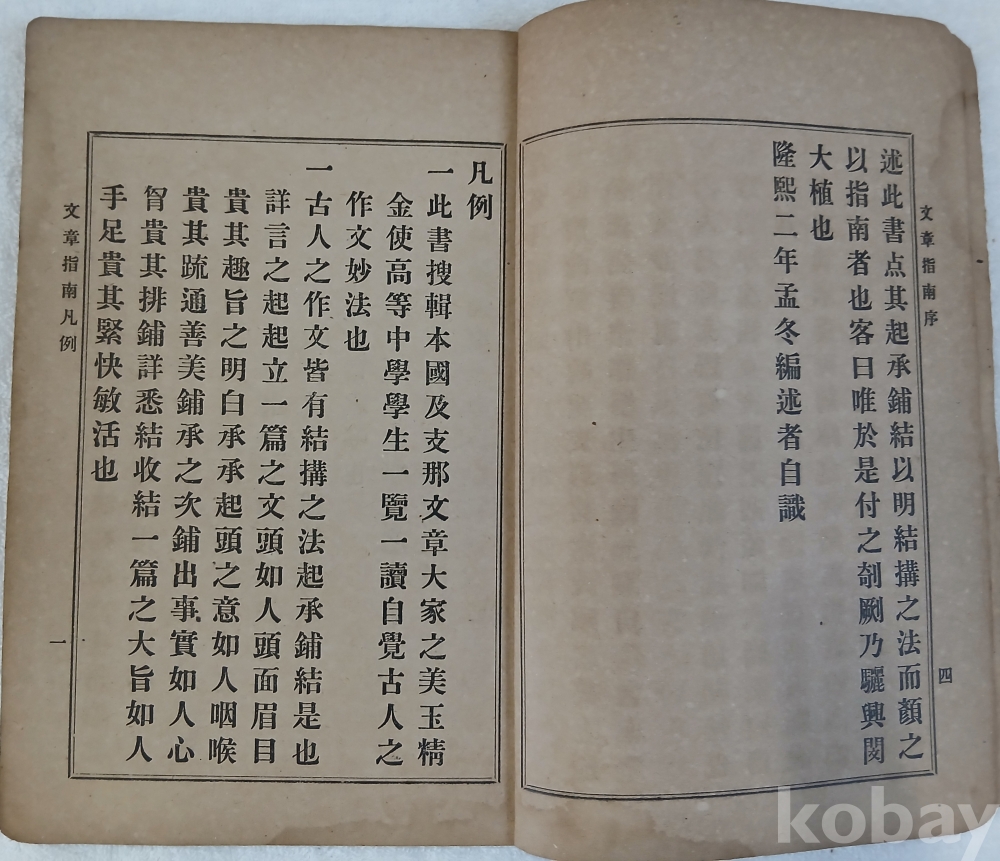 文章指南序
四
述此書点其起承鋪結以明結搆之法而顏之
以指南者也客曰唯於是付之剞劂乃驪興閔
大植也
隆熙二年孟冬編述者自識
凡例
一此書搜輯本國及支那文章大家之美玉精
金使高等中學學生一覽一讀自覺古人之
作文妙法也
一古人之作文皆有結搆之法起承鋪結是也
詳言之起起立一篇之文頭如人頭面眉目
貴其趣旨之明白承承起頭之意如人咽喉
貴其疏通善美鋪承之次鋪出事實如人心
胷貴其排鋪詳悉結收結一篇之大旨如人
手足貴其緊快敏活也
文章指南凡例
一
kobay